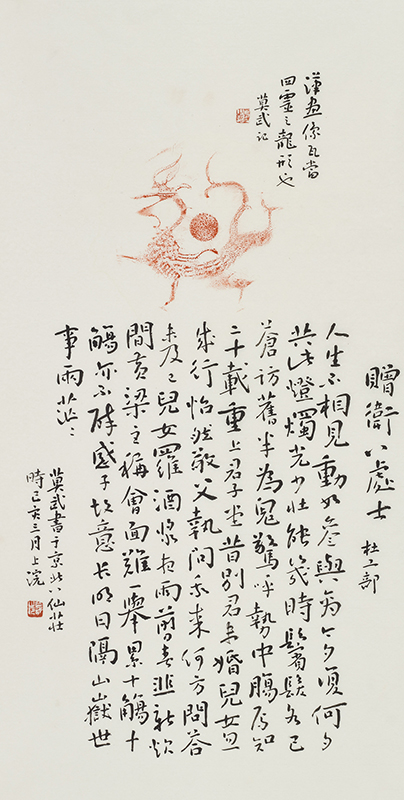 漢畫像瓦當
四靈之龍形也
莫武記
贈衛八處士 杜工部
人生不相見動如參與商今夕復何夕
共此燈燭光少壯能幾時鬢髮各已
蒼訪舊半為鬼驚呼熱中腸焉知
二十載重上君子堂昔別君未婚兒女忽
成行怡然敬父執問我來何方問答
未及已兒女羅酒漿夜雨剪春韭新炊
間黃粱主稱會面難一舉累十觴十
觴亦不醉感子故意長明日隔山嶽世
事兩茫々
莫武書于京北八仙莊
時己亥三月上浣